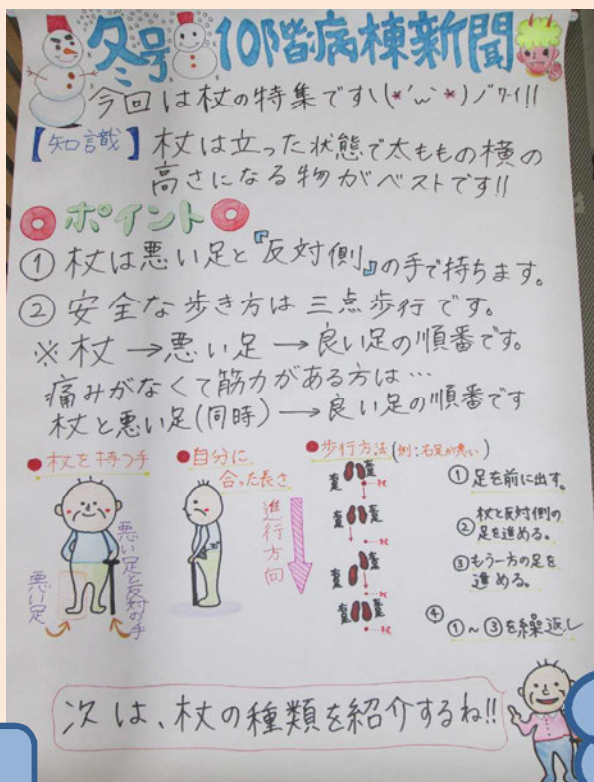 冬号 10階病棟新聞
今回は杖の特集です\(*´ω`*)/ワーイ!!
【知識】杖は立った状態で太ももの横の
高さになる物がベストです!!
ポイント
① 杖は悪い足と『反対側』の手で持ちます。
② 安全な歩き方は三点歩行です。
※杖→悪い足→良い足の順番です。
痛みがなくて筋力がある方は…
杖と悪い足(同時)→良い足の順番です
●杖を持つ手
悪い足
悪い足と反対の手
●自分に
合った長さ
進行方向
●歩行方法(例:右足が悪い)
①足を前に出す。
②杖と反対側の
足を進める。
③もう一方の足を
進める。
④①~③を繰返し
次は、杖の種類を紹介するね!!